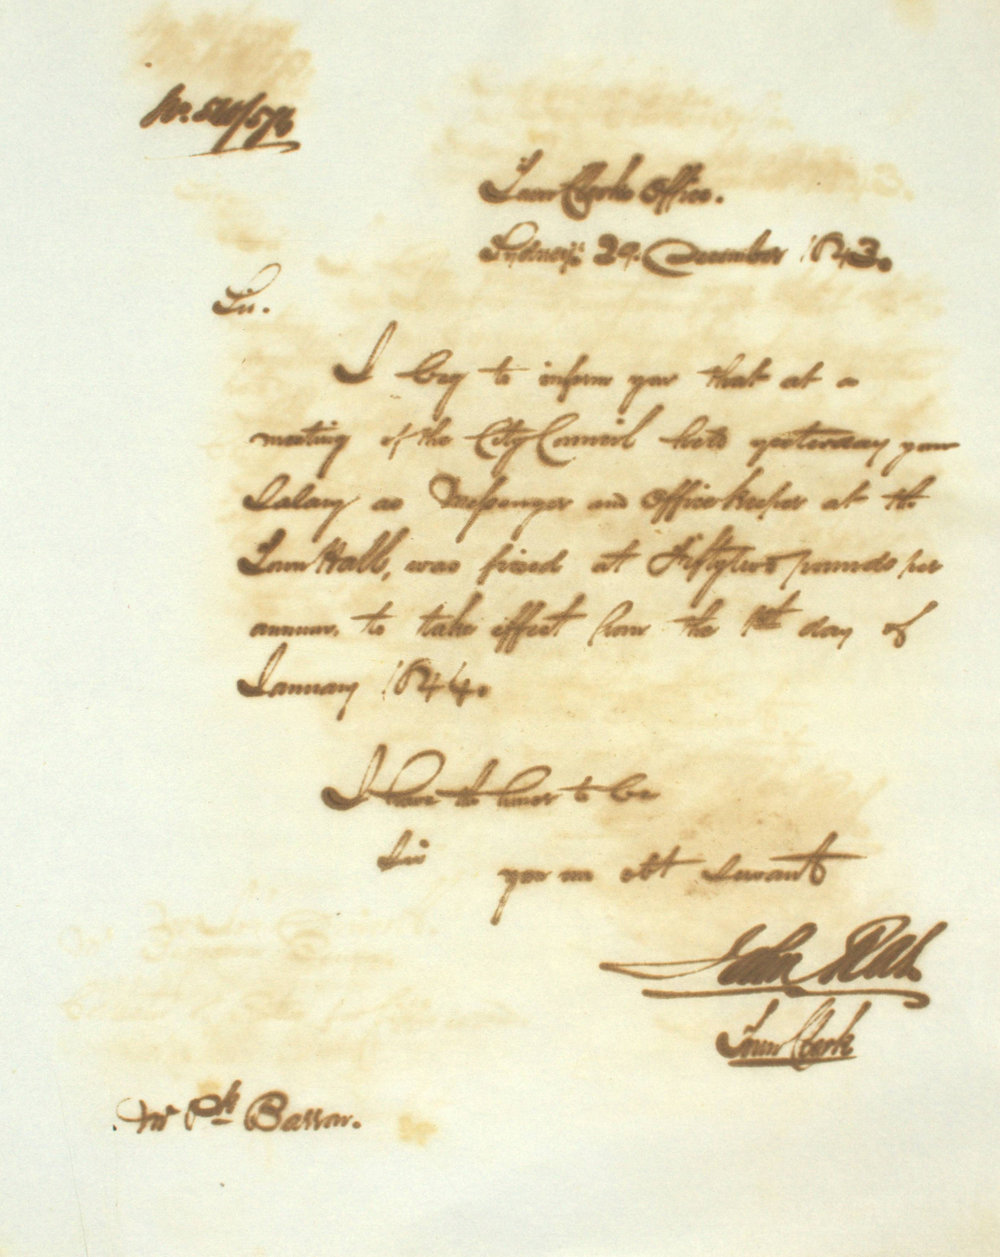 Town Clerks Office.
Sydney 29. December 1843.
Sir.
I beg to inform you that at a
meeting of the City Council held yesterday your
Salary as Messenger and Office keeper at the
Town Hall, was fixed at Fiftytwo pounds per
annum, to take effect from the 1st day of
January 1844.
I have the honor to be
Sir
your mo obt Servant
John
Town Clerk
Mr Pk